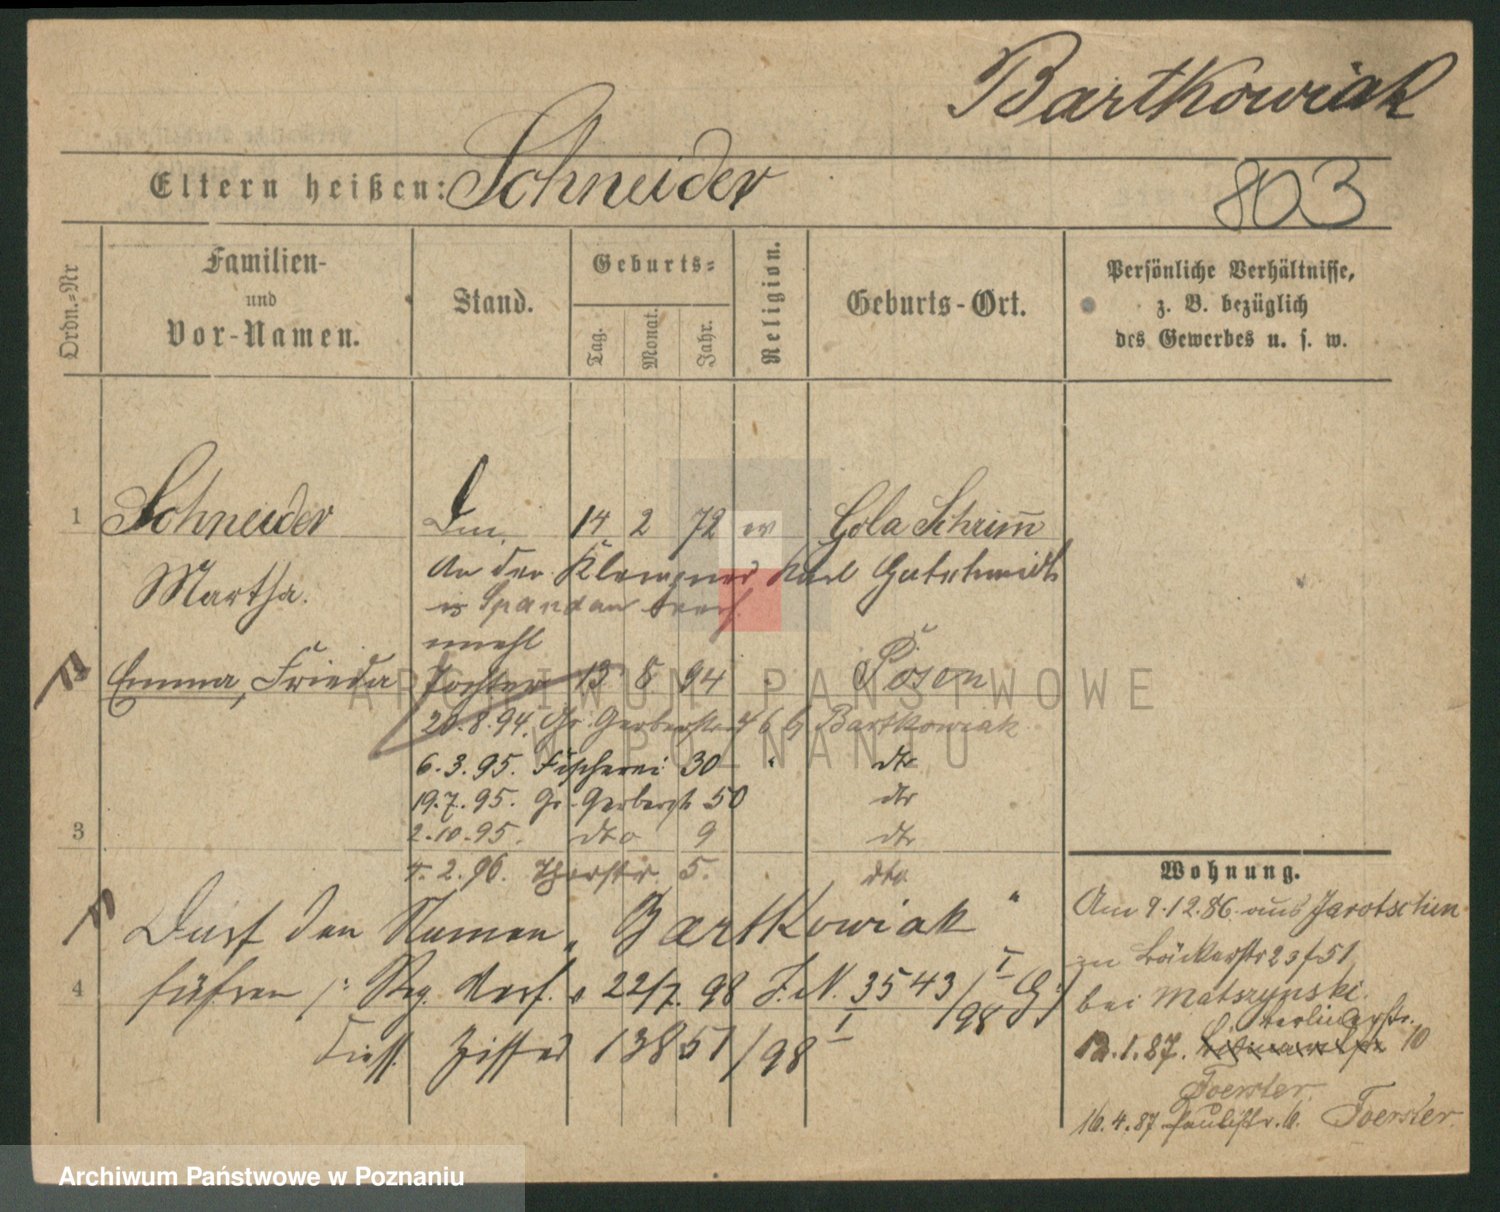 Bartkowiak
Eltern heißen: Schneider
803
Ordn.-Nr
Familien-
und
Vor-Namen.
Stand.
Geburts-
Tag.
Monat.
Jahr.
Religion.
Geburts-Ort.
Persönliche Verhältnisse,
z. B. bezüglich
des Gewerbes u. s. w.
1 Schneider 14 2 72 ev Gola Schrim̅
Martha.
An den Klempner Karl Gutschmidt
in Spandau verh.
Emma, Frieda Tochter 13 8 94 Posen
20.8.94. Gr. Gerberstr 46 b Bartkowiak
6.3.95. Fischerei 30 dto
19.7.95. Gr. Gerberstr 50 dto
3
2.10.95. dto 9 dto
4.2.96. Thorstr. 5. dto
Darf den Namen „Bartkowiak"
4
führen /: Reg. Verf. v 22/7. 98 J.N. 3543/98 I G:/
13851/98 I
Wohnung.
Am 9.12.86. aus Jarotschin
zu Bäckerstr 23 f 51
bei Matszynski.
12.1.87. 10
Foerster
16.4.87 Paulistr. 6. Foerster.
ARCHIWUM PAŃSTWOWE
W POZNANIU
Archiwum Państwowe w Poznaniu